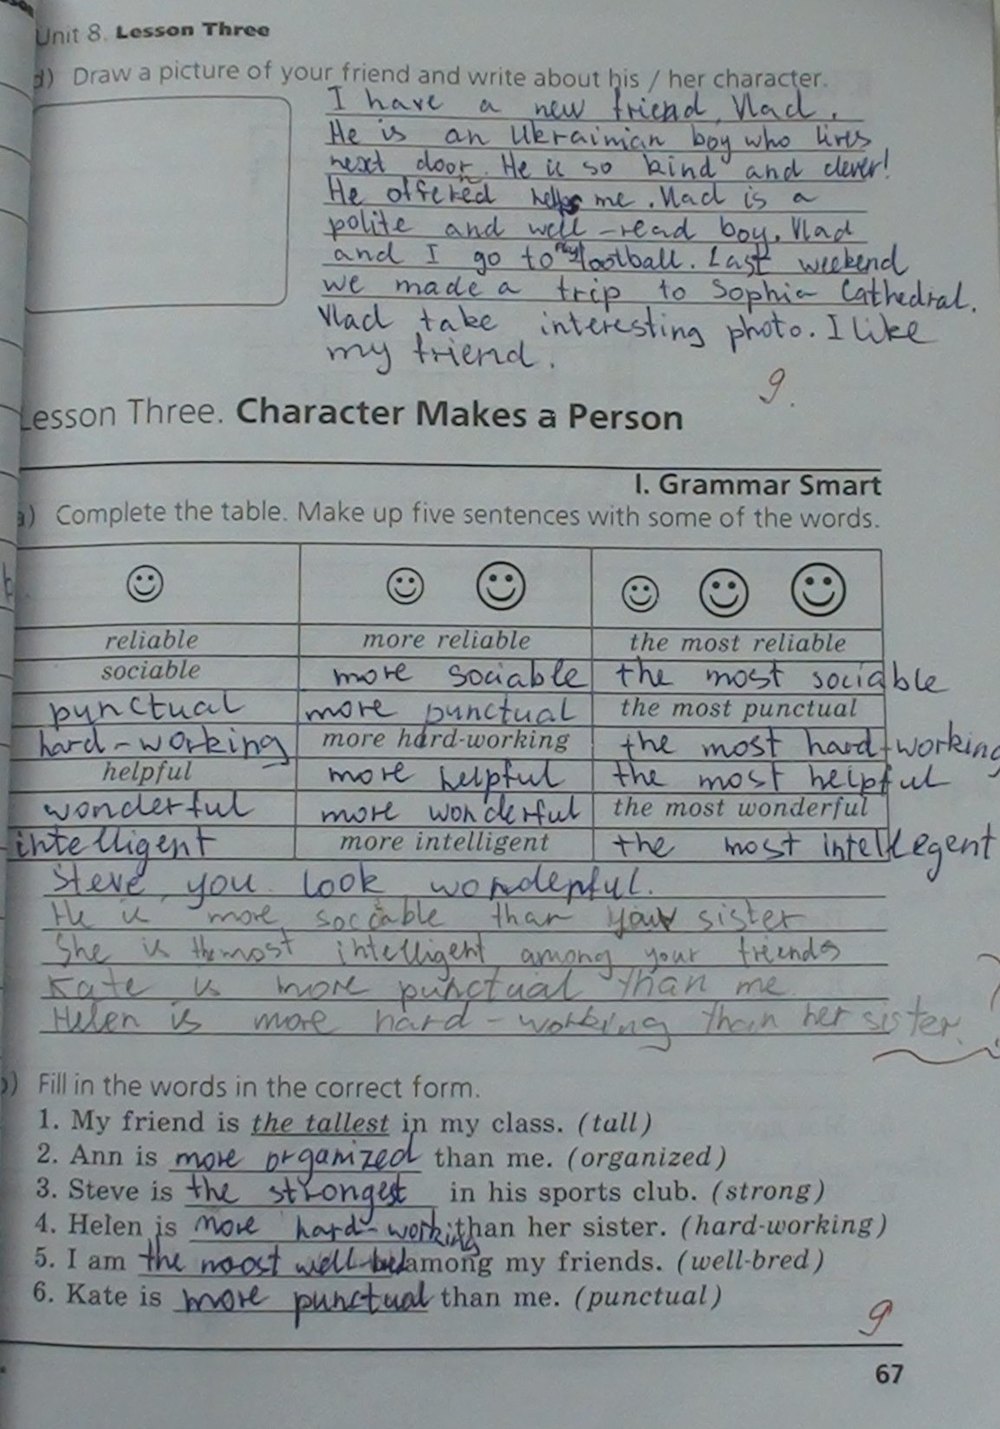 Unit 8. Lesson Three
d) Draw a picture of your friend and write about his / her character.
I have a new friend, Vlad.
He is an Ukrainian boy who lives
next door. He is so kind and clever!
He offered helps me. Vlad is a
polite and well-read boy. Vlad
and I go to play football. Last weekend
we made a trip to Sophia Cathedral.
Vlad take interesting photo. I like
my friend.
9.
Lesson Three. Character Makes a Person
I. Grammar Smart
a) Complete the table. Make up five sentences with some of the words.
reliable more reliable the most reliable
sociable more sociable the most sociable
punctual more punctual the most punctual
hard-working more hard-working the most hard-working
helpful more helpful the most helpful
wonderful more wonderful the most wonderful
intelligent more intelligent the most intellegent
Steve, you look wondenful.
He is more sociable than your sister
She is the most intelligent among your friends
Kate is more punctual than me
Helen is more hard-working than her sister.
b) Fill in the words in the correct form.
1. My friend is the tallest in my class. (tall)
2. Ann is more organized than me. (organized)
3. Steve is the strongest in his sports club. (strong)
4. Helen is more hard-working than her sister. (hard-working)
5. I am the most well-bred among my friends. (well-bred)
6. Kate is more punctual than me. (punctual)
9
67